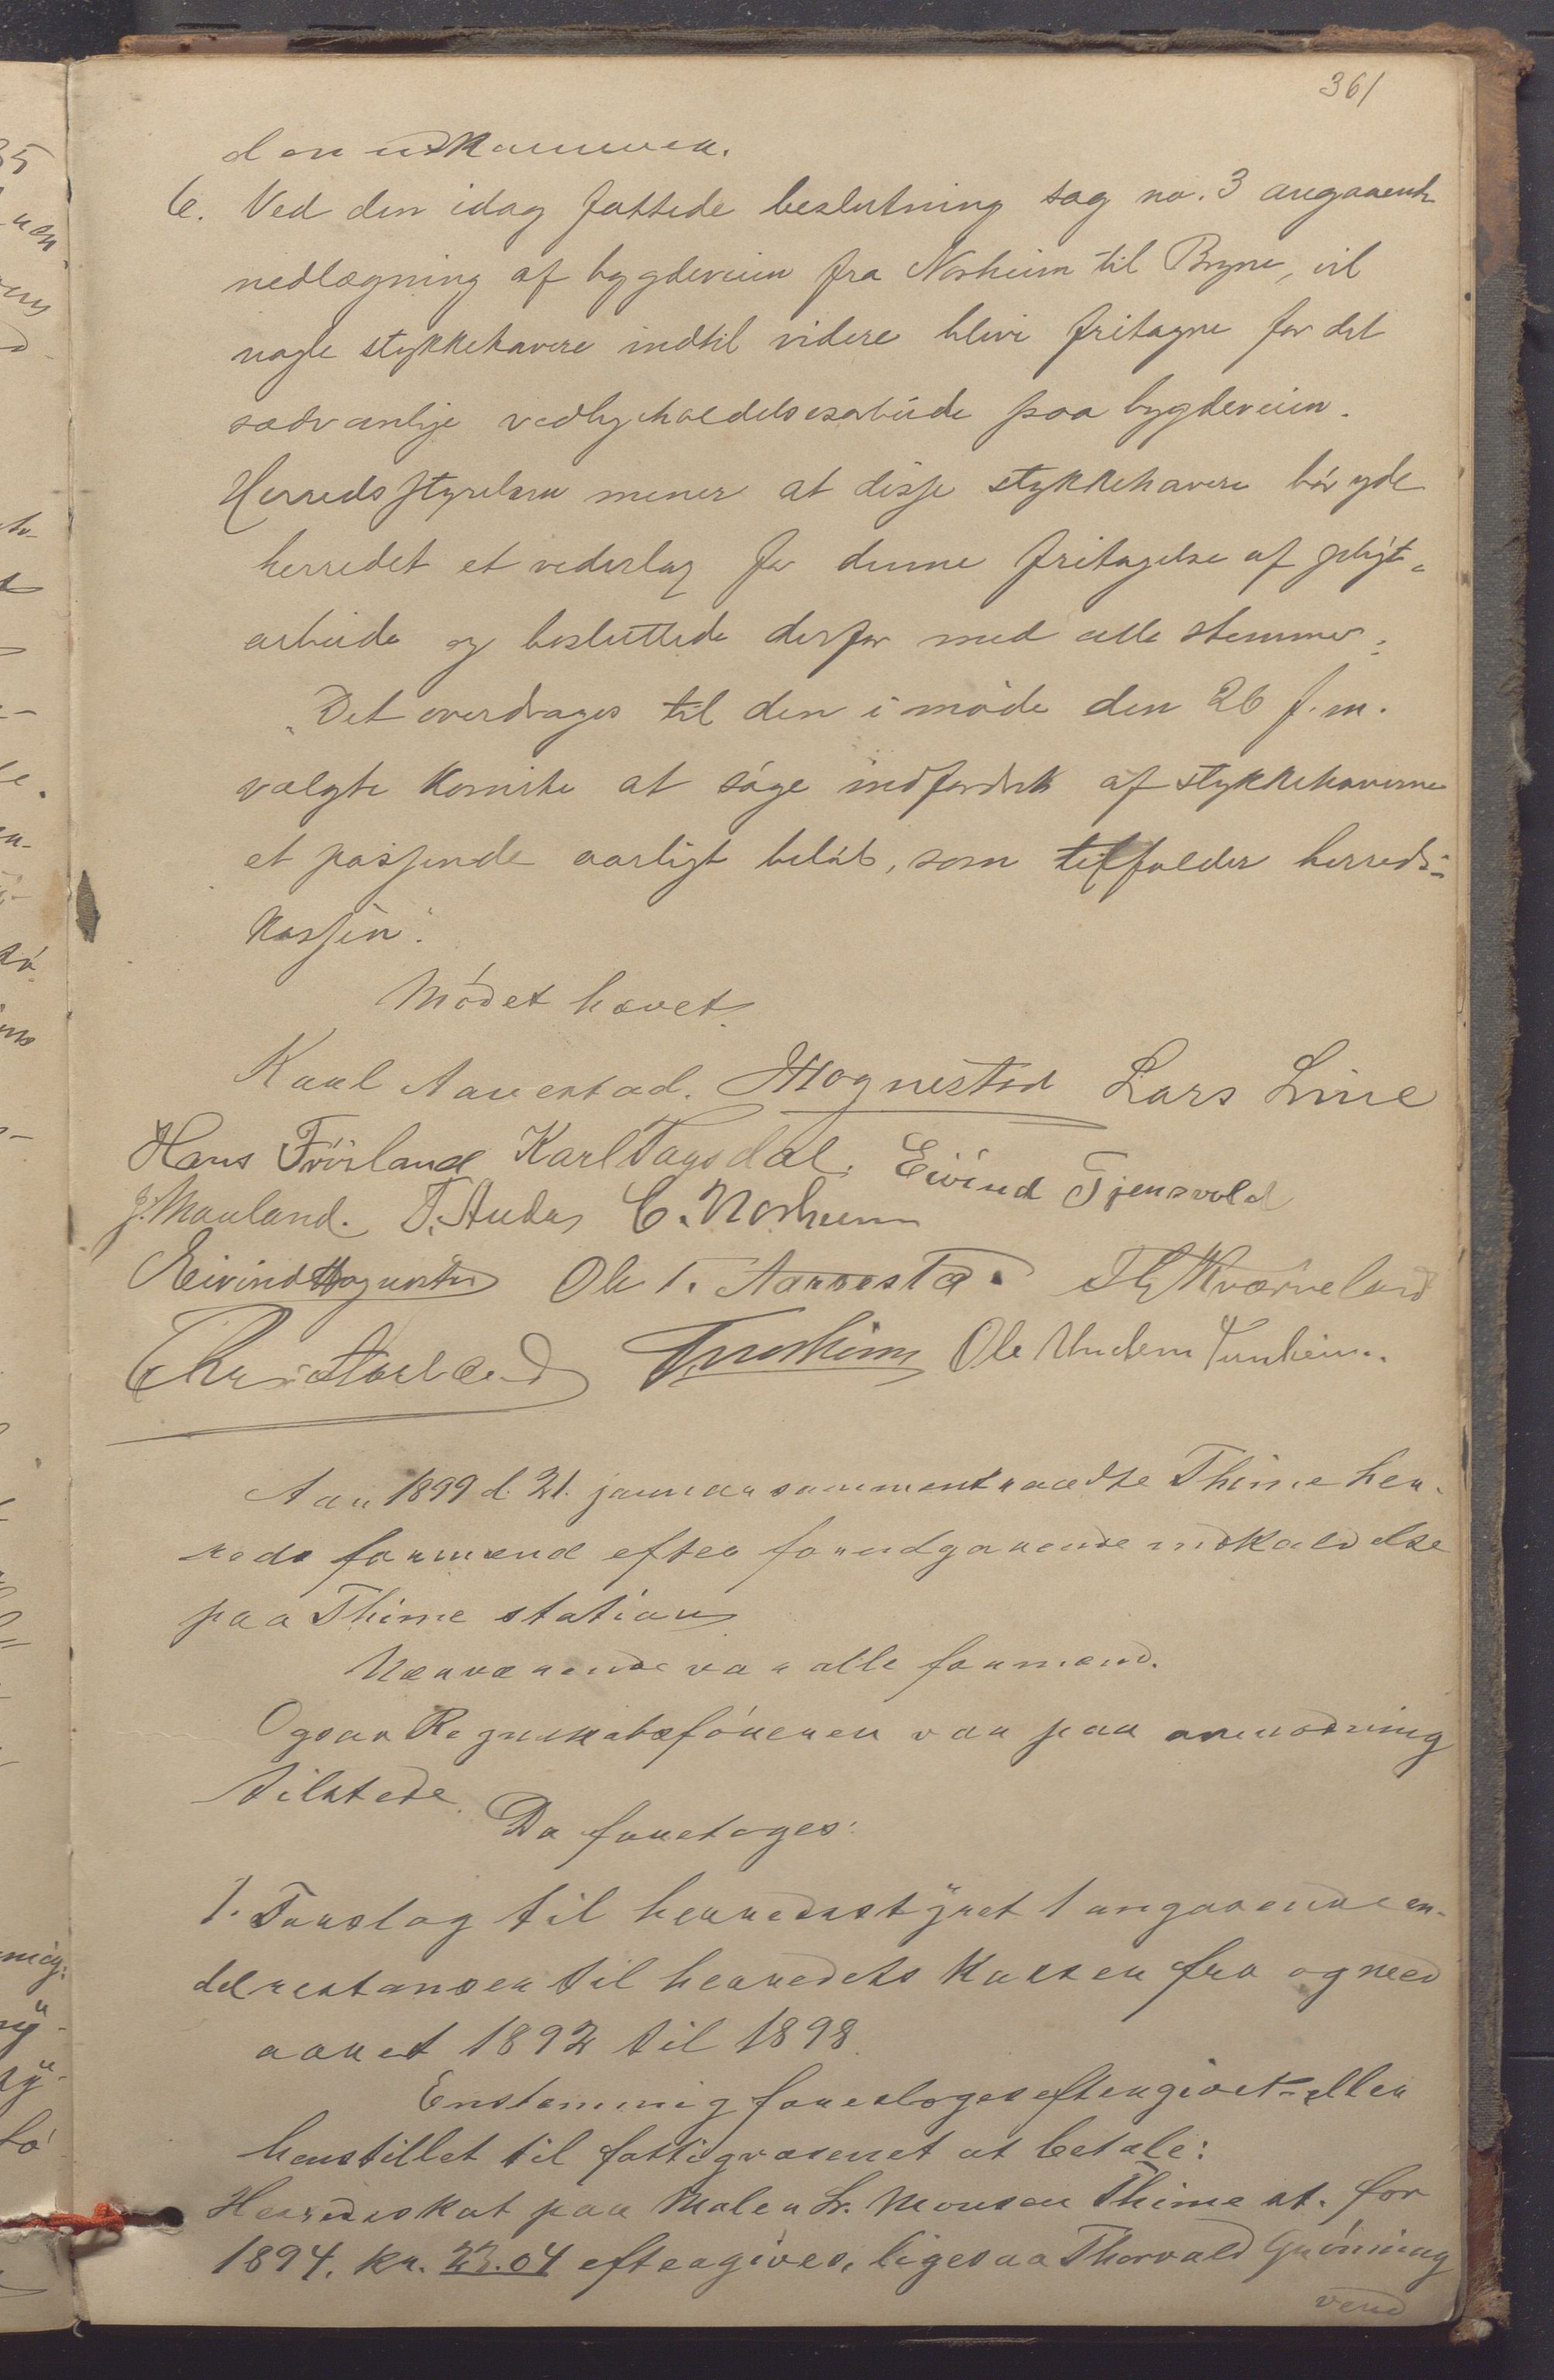 361
den udkommen.
6. Ved den idag fattede beslutning sag no. 3 angaaende
nedlægning af bygdeveien fra Norheim til Bryne, vil
nogle stykkehavere indtil videre blive fritagne for det
sædvanlige vedligeholdelsesarbeide paa bygdeveien.
Herredsstyrelsen mener at disse stykkehavere bör yde
herredet et vederlag for denne fritagelse af pligt-
arbeide og besluttede derfor med alle stemmer:
"Det overdrages til den i möde den 26 f. m.
valgte komite at söge indfordret af stykkehaverne
et passende aarligt belöb, som tilfalder herreds-
kassen".
Mödet hævet.
Karl Aarrestad. Hognestad Lars Line
Hans Fröiland Karl Tagsdal. Eivind Tjensvold
J. Mauland. T. Undem C. Norheim
Eivind Hognestad Ole T. Aarrestad. Kværneland
Norheim Ole Undem Tunheim.
Aar 1899 d. 21. januar sammentraadte Thime her-
reds formænd efter forudgaaende indkaldelse
paa Thime station
Nærværende var alle formænd.
Ogsaa Regnskabsföreren var paa anmodning
tilstede.
Da foretoges:
1. Forslag til herredsstyret angaaende en-
del restanser til herredets kasser fra og med
aaret 1892 til 1898.
Enstemmig foresloges eftergivet eller
henstillet til fattigvæsenet at betale:
Herredsskat paa Maler Monsen Thime st. for
1894. kr. 23.04 eftergives, ligesaa Thorvald Gröning
vend